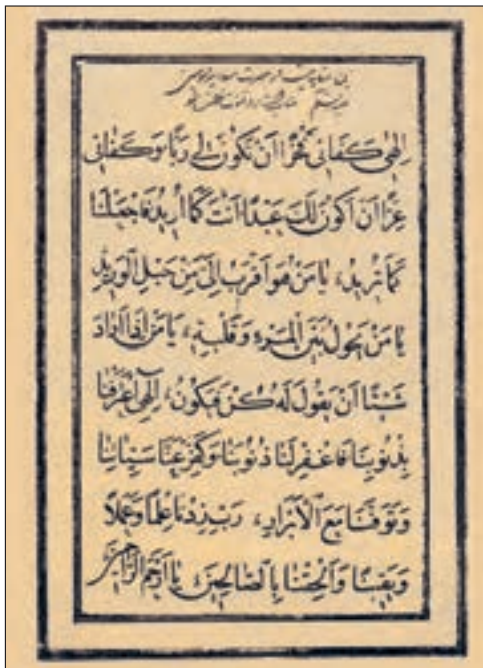 این مناجات از حضرت
الهی کفانی فخرا ان تکون لی ربا وکفانی
عزا ان اکون لک عبدا انت کما ارید فاجعلنا
کما ترید، یا من هو اقرب الی من حبل الورید
یا من یحول بین المرء وقلبه، یا من اذا اراد
شیئا ان یقول له کن فیکون، الهی اعترفنا
بذنوبنا فاغفر لنا ذنوبنا وکفر عنا سیئاتنا
وتوفنا مع الابرار، رب زدنا علما وعملا
ویقینا والحقنا بالصالحین یا ارحم الراحمین